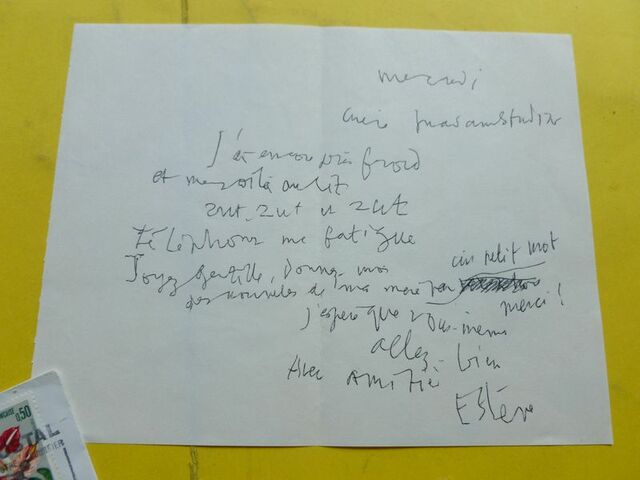 mercredi
J'ai encore pris froid
et me voilà au lit
zut, zut et zut
Téléphoner me fatigue
Soyez gentille, donnez-moi
des nouvelles de ma mère par
un petit mot
merci!
j'espère que vous-même
allez bien
Avec amitié
Estève
0,50
TAL